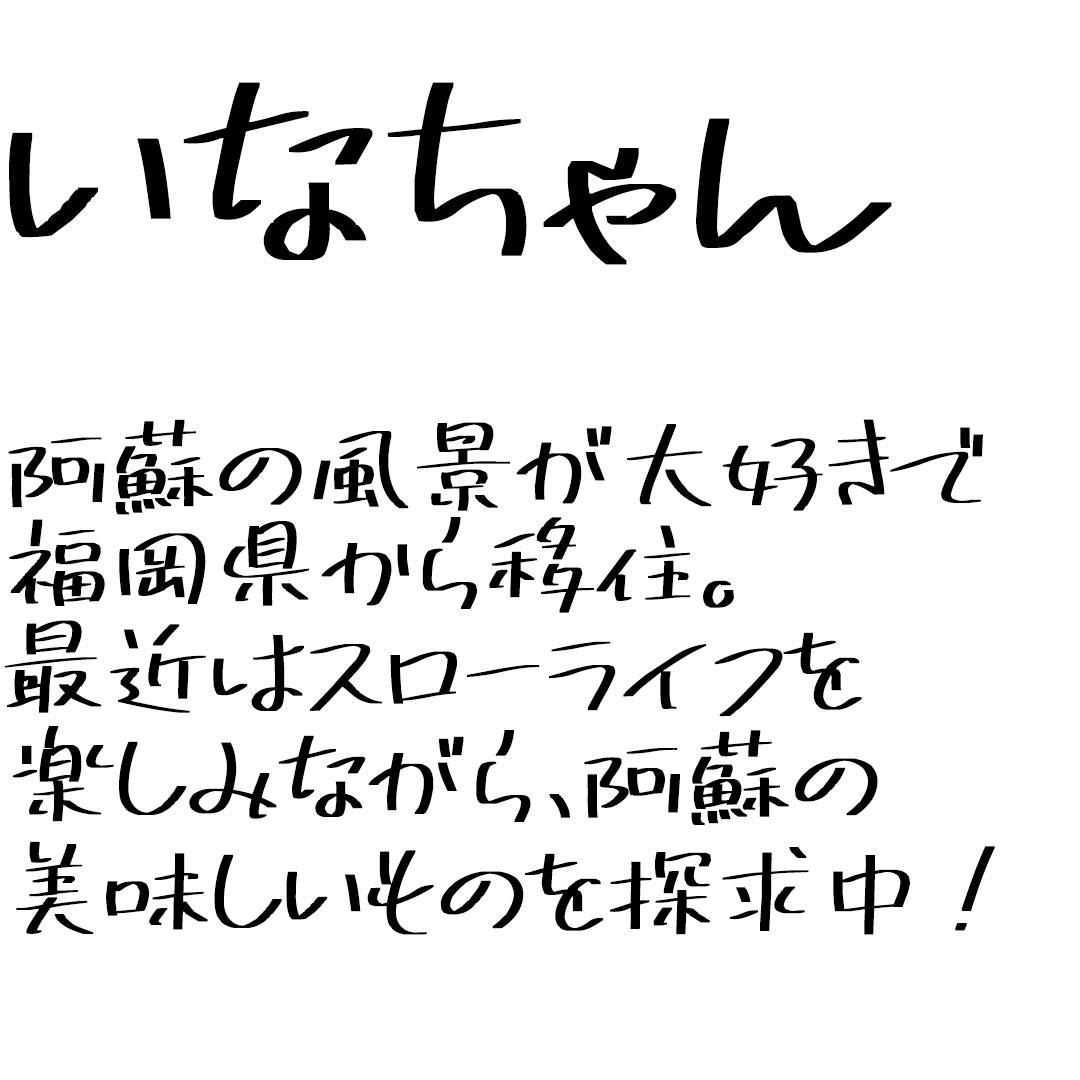 いなちゃん
阿蘇の風景が大好きで
福岡県から移住。
最近はスローライフを
楽しみながら、阿蘇の
美味しいものを探求中！